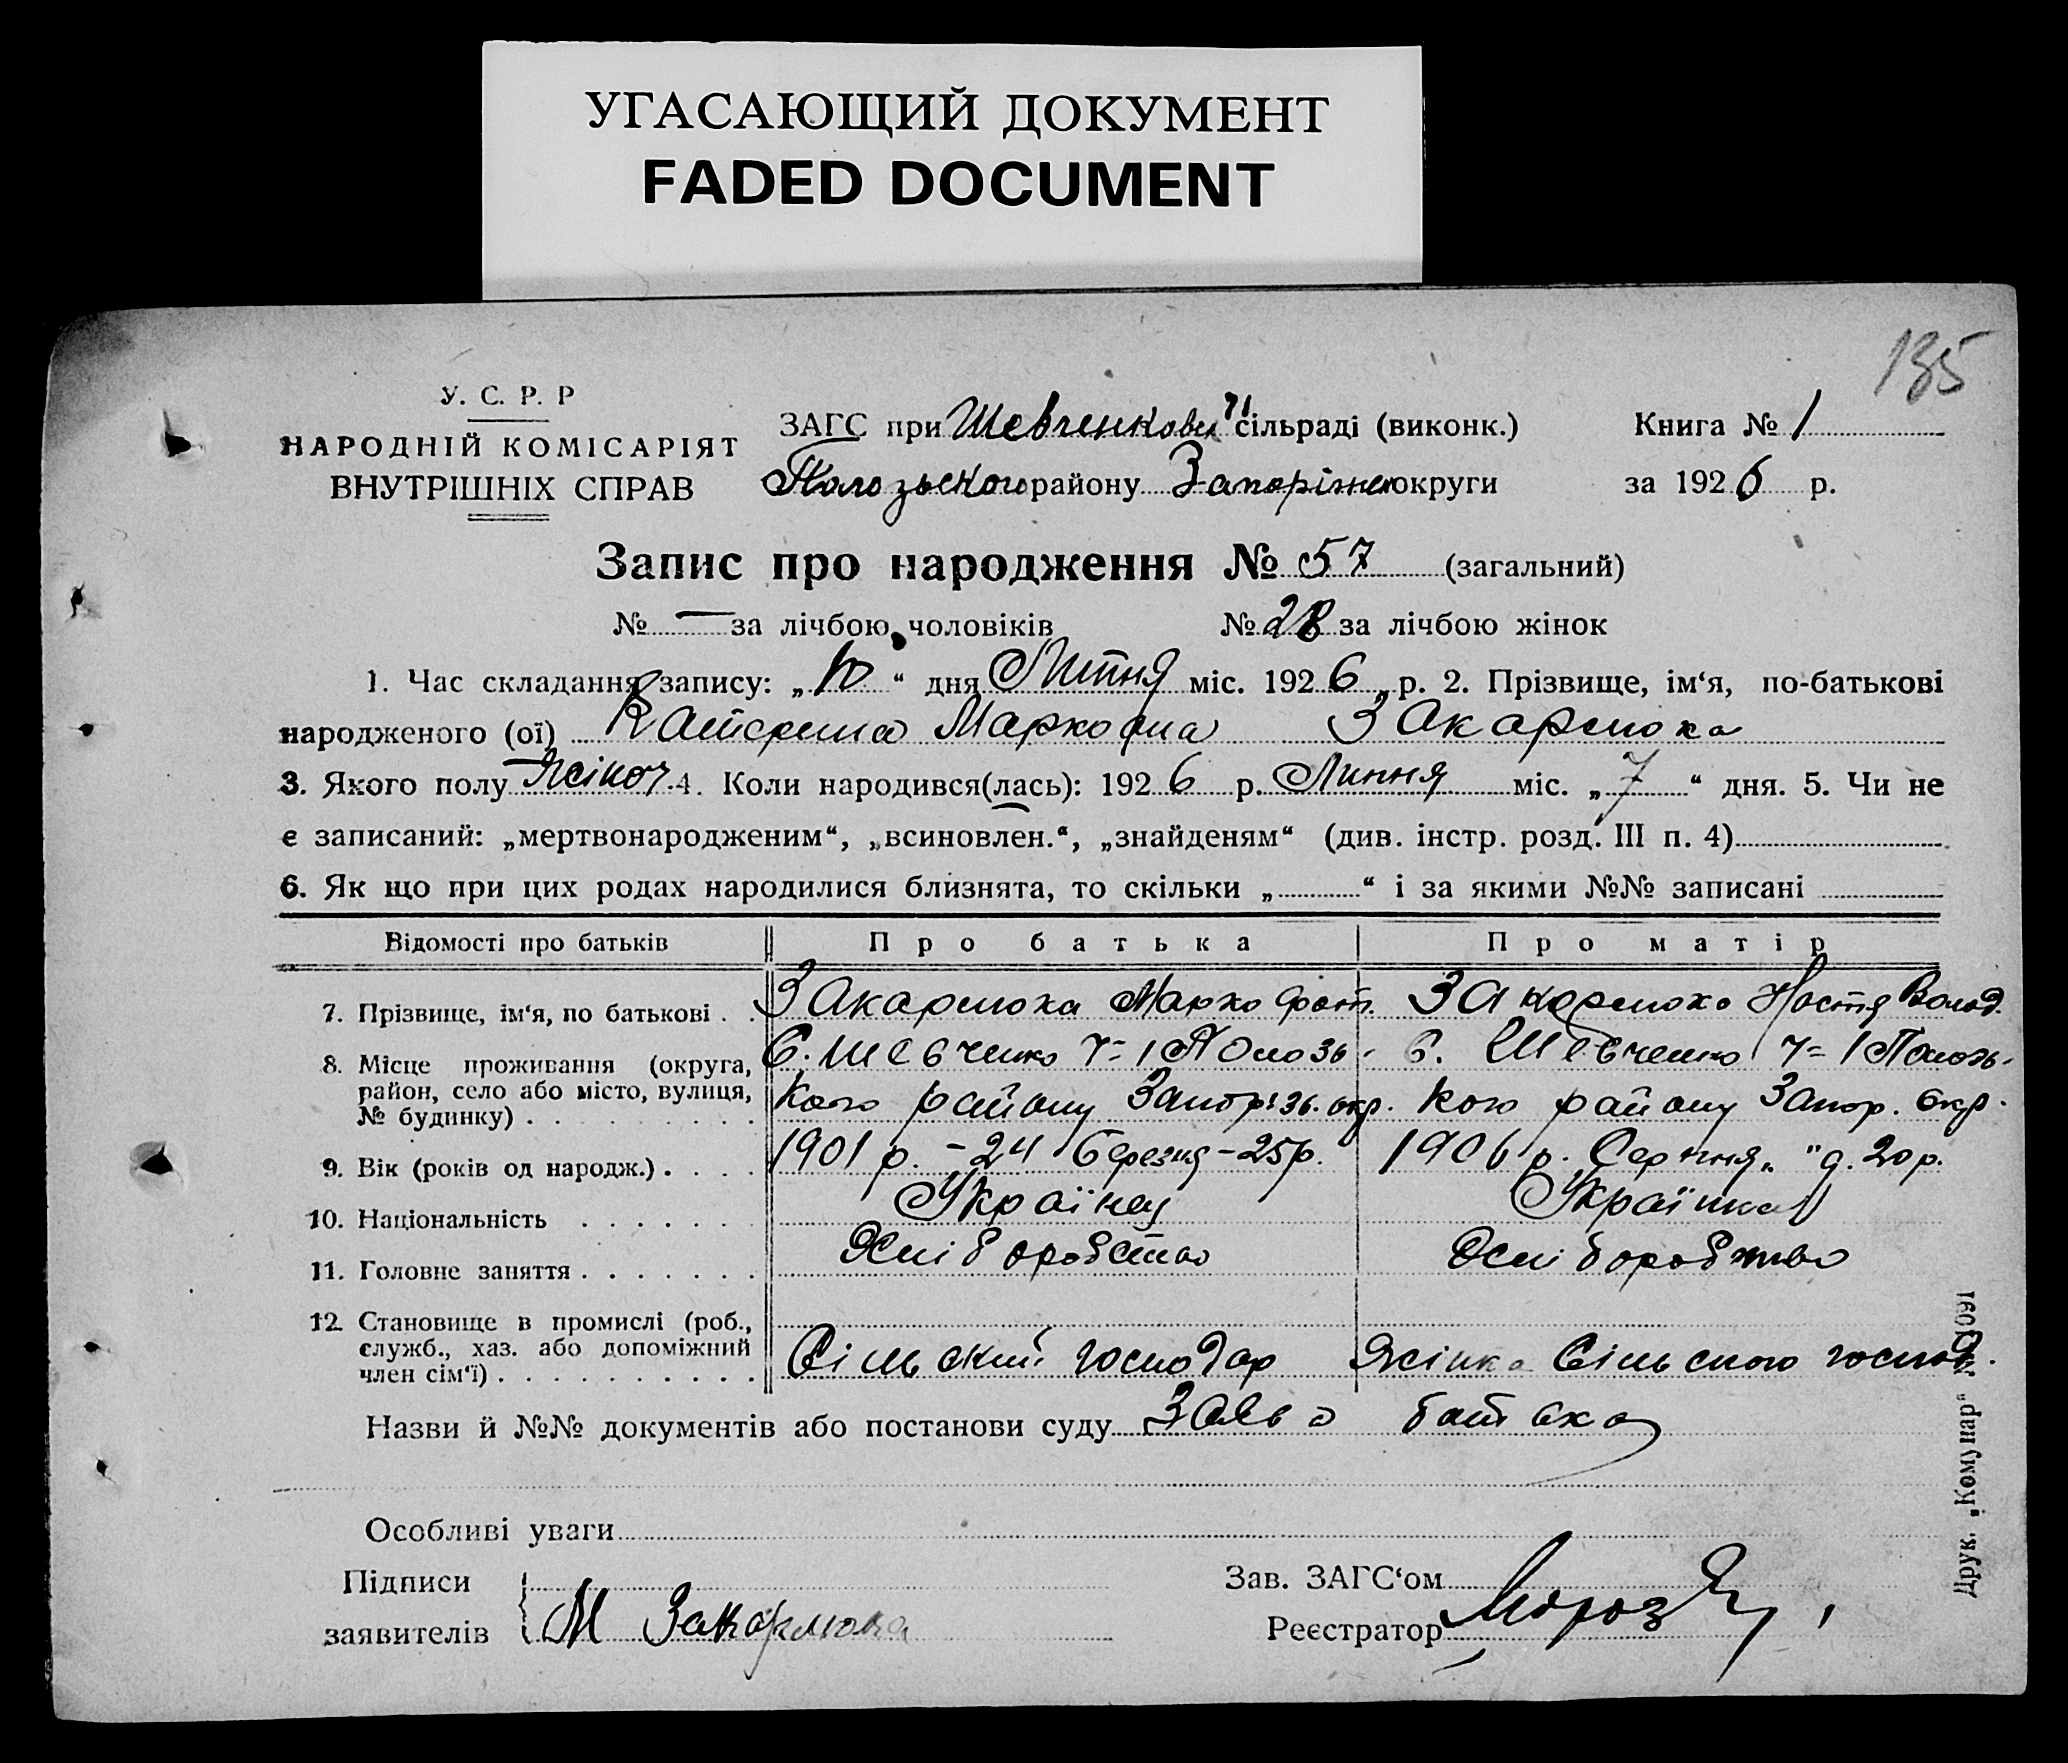 УГАСАЮЩИЙ ДОКУМЕНТ
FADED DOCUMENT
185
У. С. Р. Р
НАРОДНІЙ КОМІСАРІЯТ
ВНУТРІШНІХ СПРАВ
ЗАГС при Шевченков ч1 сільраді (виконк.)
Пологзьского району Запоріжск округи
Книга № 1
за 1926 р.
Запис про народження № 57 (загальний)
№ — за лічбою чоловіків № 28 за лічбою жінок
1. Час складання запису: „10“ дня Липня міс. 1926 р. 2. Прізвище, ім‘я, по-батькові
народженого (ої) Катерина Маркофна Закарлюка
3. Якого полу Жіноч. 4. Коли народився(лась): 1926 р. Липня міс. „7“ дня. 5. Чи не
є записаний: „мертвонародженим“, „всиновлен.“, „знайденям“ (див. інстр. розд. III п. 4)
6. Як що при цих родах народилися близнята, то скільки „ “ і за якими №№ записані
Відомості про батьків Про батька Про матір
7. Прізвище, ім‘я, по батькові . . Закарлюка Марко Закарлюка Настя Волод.
8. Місце проживання (округа, С. Шевченко ч=1 Пологзь- С. Шевченко ч=1 Пологзь-
район, село або місто, вулиця,
№ будинку) . . . . . . . . . кого району Запоріз. окр. кого району Запор. Окр.
9. Вік (років од народж.) . . . . 1901 р. – 24 Березня – 25 р. 1906 р. Серпня „ " д. 20 р.
10. Національність . . . . . . . Українец Українка
11. Головне заняття . . . . . . . Хліборобство Хліборобство
12. Становище в промислі (роб.,
служб., хаз. або допоміжний Сільский господар Жінка Сільского господ.
член сім‘ї) . . . . . . . . . . .
Назви й №№ документів або постанови суду Заява батька
Особливі уваги
Підписи Зав. ЗАГС‘ом
заявителів М Закарлюка Реєстратор Мороз
Друк. „Комунар“ № 1091